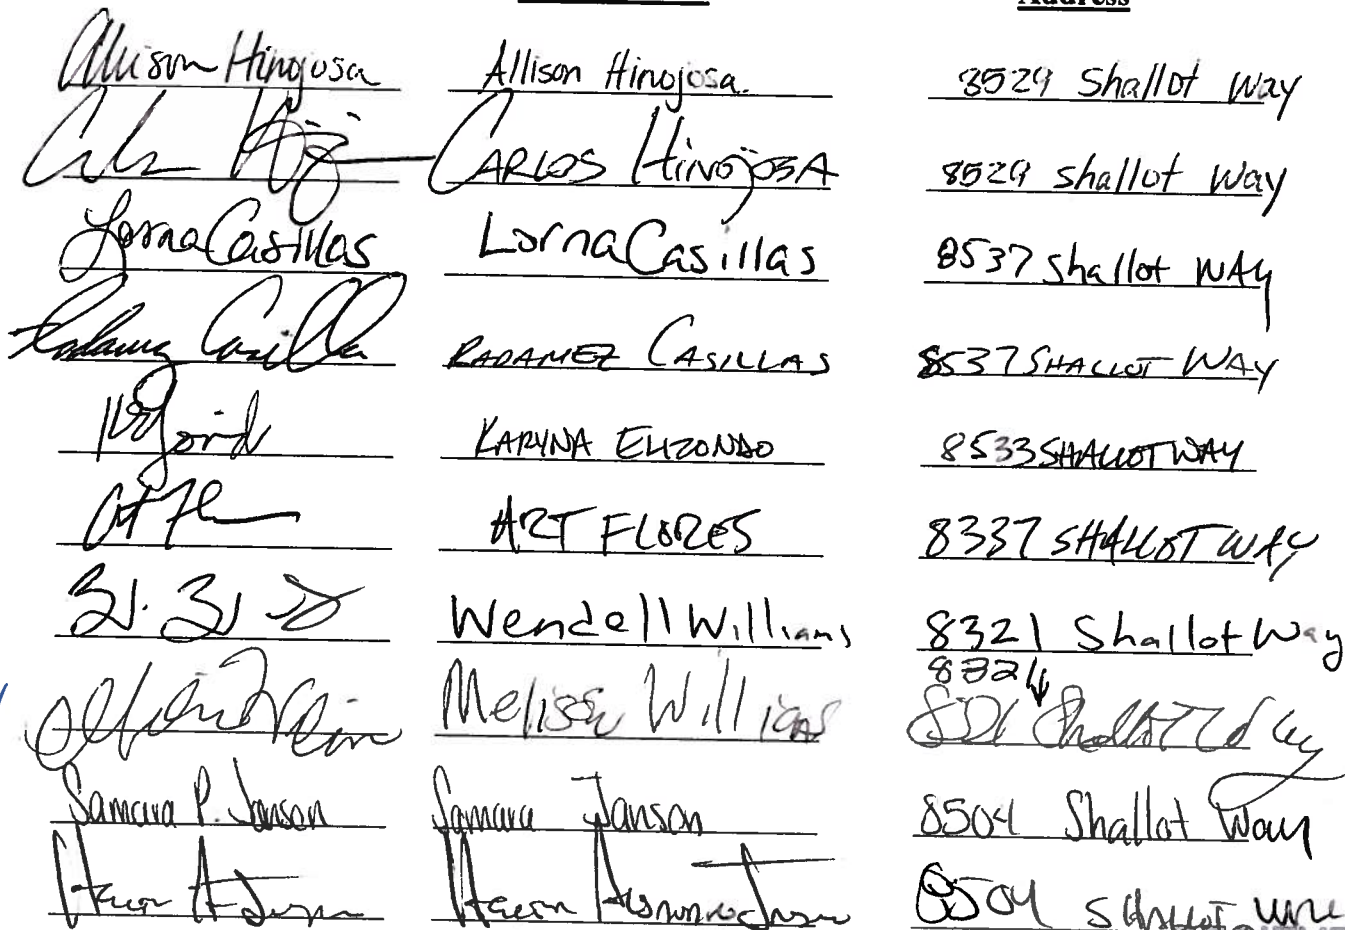 Address
Allison Hinojosa Allison Hinojosa. 8529 Shallot Way
CARLOS HINOJOSA 8529 shallot way
Lorna Casillas Lorna Casillas 8537 Shallot WAY
Casilla RADAMEZ CASILLAS 8537 SHALLOT WAY
KARYNA ELIZONDO 8533 SHALLOT WAY
ART FLORES 8337 SHALLOT WAY
Wendell Williams 8321 Shallot Way
8321
Melissa Williams 821 Shallot Way
Samara P. Janson Samara Janson 8504 Shallot Way
8504 SHALLOT